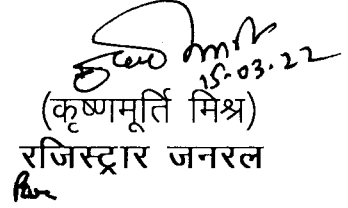 15-03-22
(कृष्णमूर्ति मिश्र)
रजिस्ट्रार जनरल